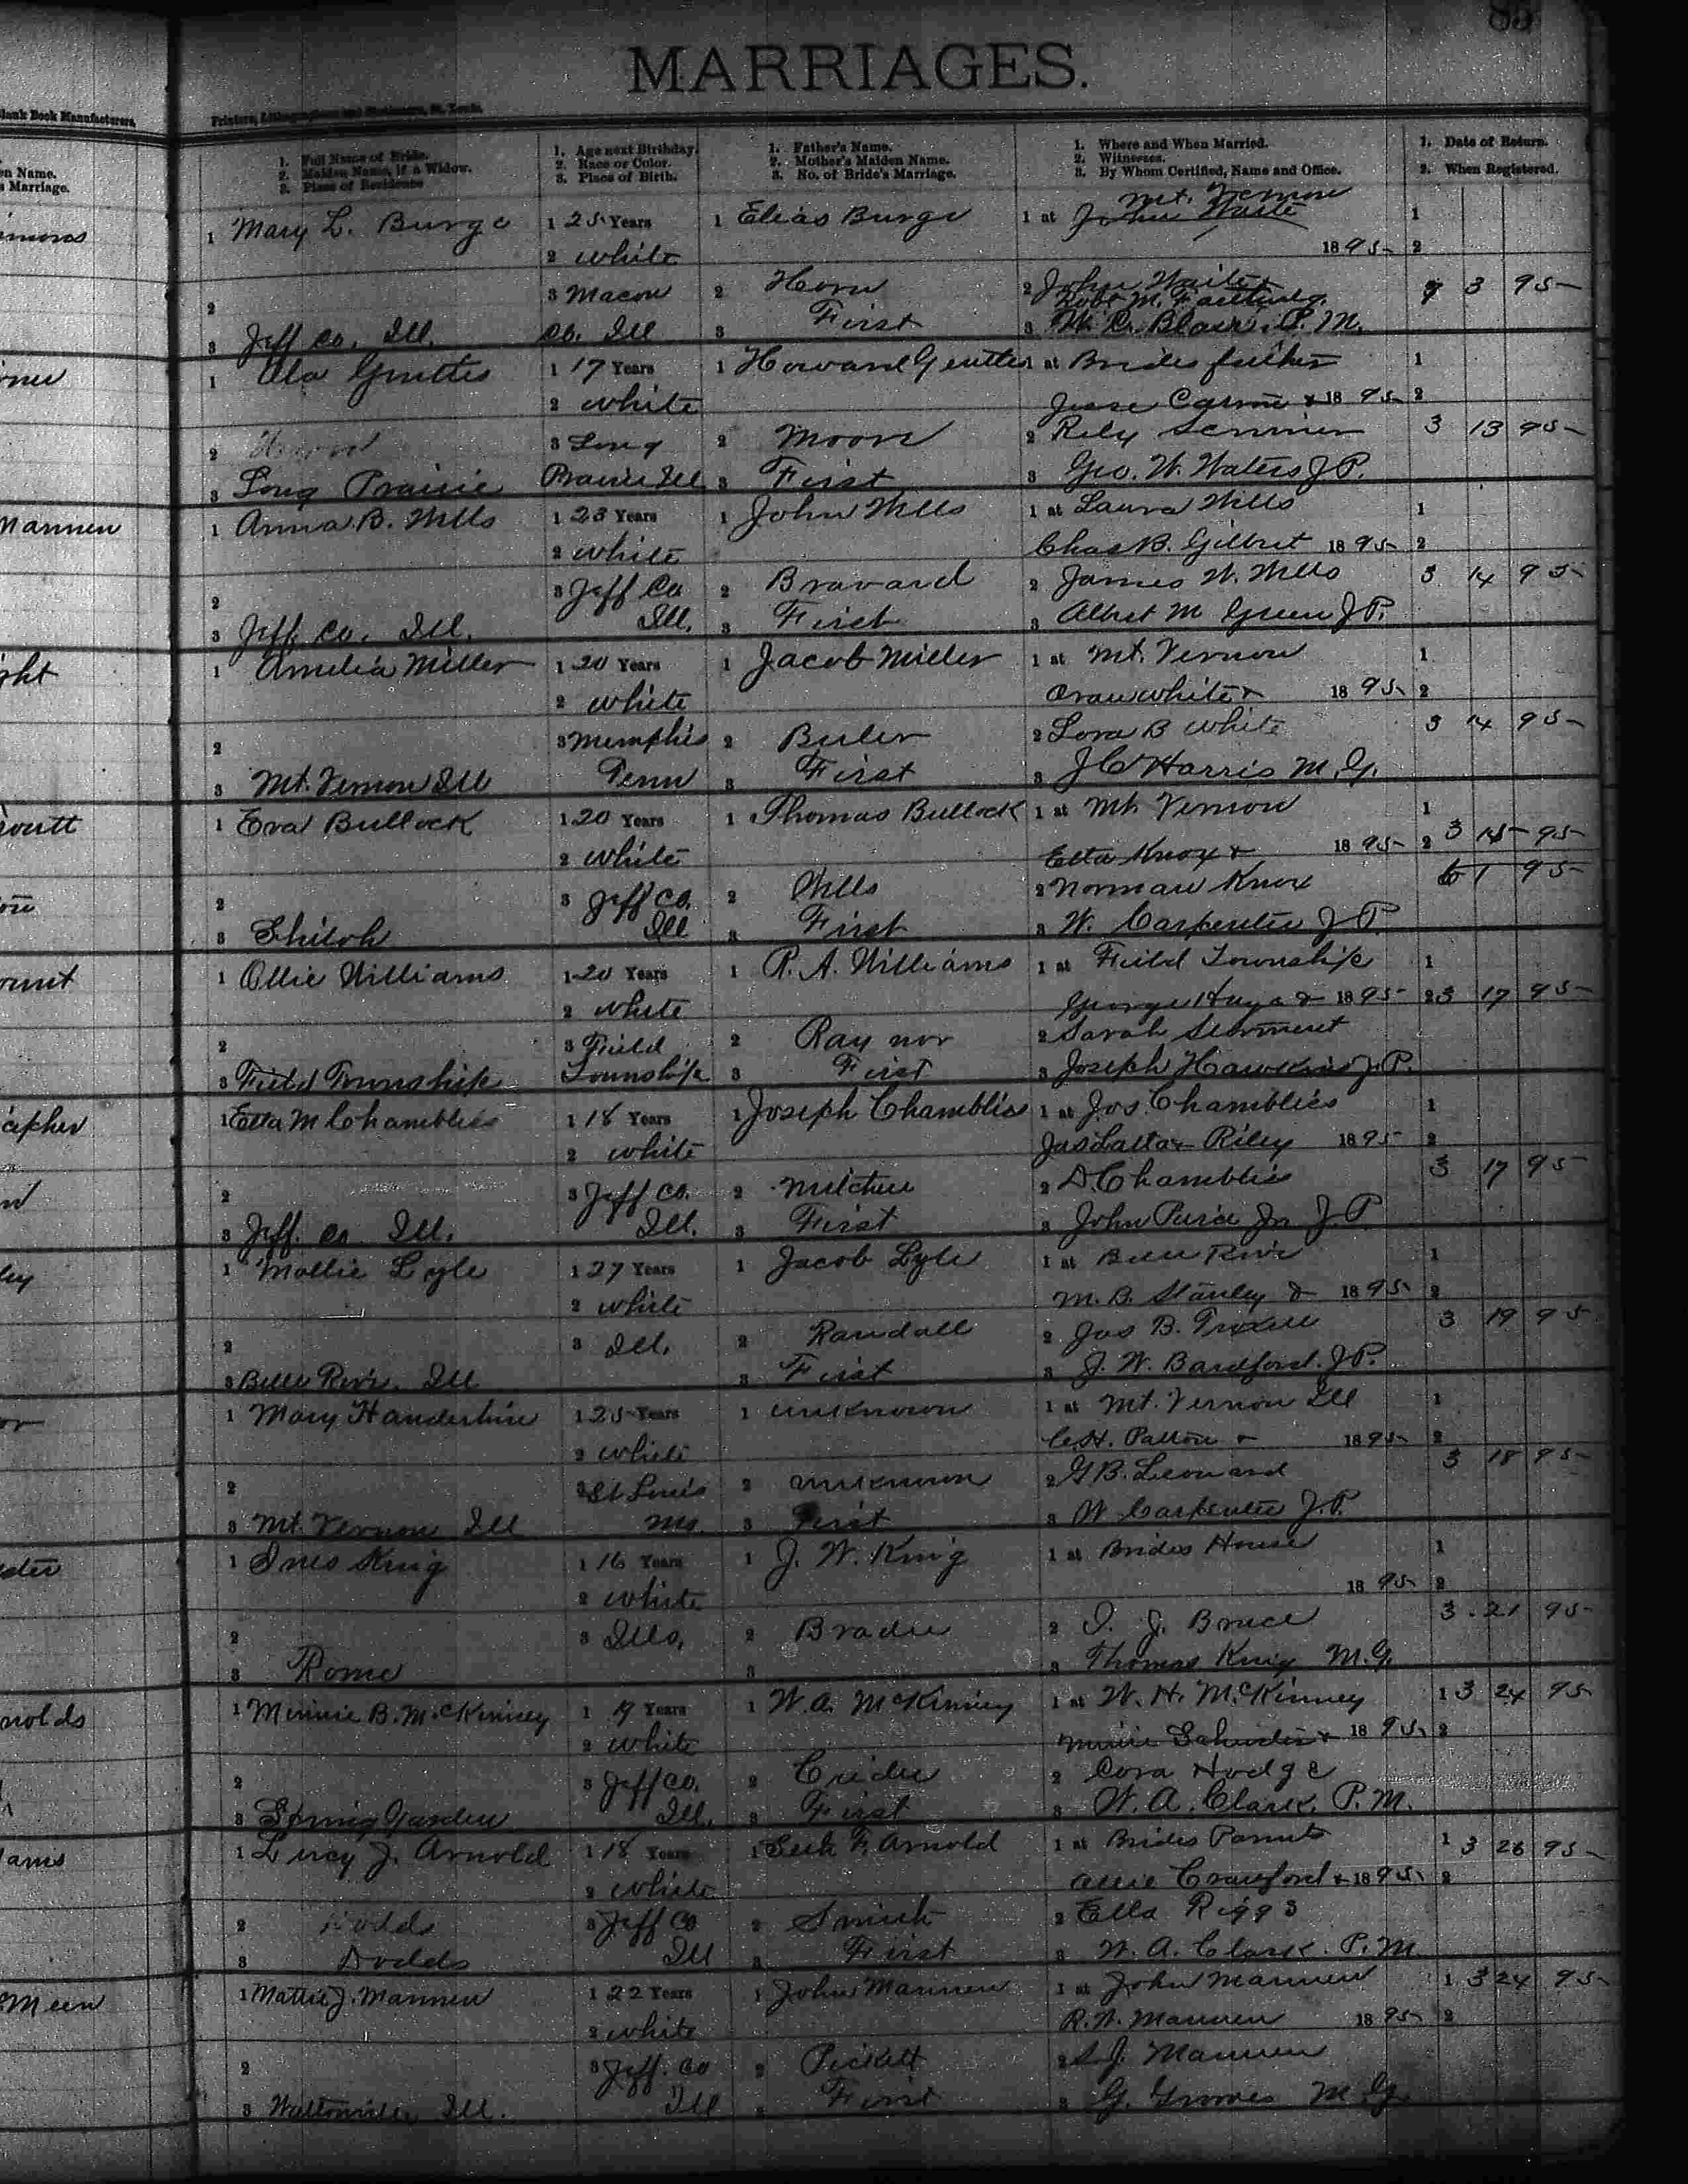 85
MARRIAGES.
Blank Book Manufacturers.
Printers, Lithographers and Stationers, St. Louis.
1. Full Name of Bride.
2. Maiden Name, if a Widow.
3. Place of Residence
1. Age next Birthday.
2. Race or Color.
3. Place of Birth.
1. Father's Name.
2. Mother's Maiden Name.
3. No. of Bride's Marriage.
1. Where and When Married.
2. Witnesses.
3. By Whom Certified, Name and Office.
1. Date of Return.
2. When Registered.
n Name.
Marriage.
1 Mary L. Burge 1 25 Years 1 Elias Burge 1 at Mt. Vernon 1
John Waite
2 white 1895 2
2 3 Macon 2 Horn 2 John Waite &
Robt M. 3 95
3 Jeff Co. Ill. Co. Ill 3 First 3 W. C. Blair. P. M.
1 1 17 Years 1 Howard 1 at Brides father 1
2 white Jesse & 1895 2
2 3 Long 2 Moore 2 Rily 3 13 95
3 Long Prairie Prairie Ill 3 First 3 Geo. W. Waters J P.
Mannen
1 Anna B. Wells 1 23 Years 1 John Wells 1 at Laura Wells 1
2 white Chas B. Gilbert 1895 2
2 3 Jeff Co 2 Bravard 2 James W. Wells 3 14 95
3 Jeff. Co. Ill. Ill. 3 First 3 Albert M Green J P.
ght
1 Amelia Miller 1 20 Years 1 Jacob Miller 1 at Mt. Vernon 1
2 white Oran White & 1895 2
2 3 Memphis 2 2 Lora B White 3 14 95
3 Mt. Vernon Ill Tenn 3 First 3 J C Harris M. G.
1 Eva Bullock 1 20 Years 1 Thomas Bullock 1 at Mt. Vernon 1
2 white Etta Knox & 1895 2 3 15 95
2 3 Jeff Co. 2 Wells 2 Norman Knox 6 1 95
3 Shiloh Ill 3 First 3 W. Carpenter J P.
1 Ollie Williams 1 20 Years 1 R. A. Williams 1 at Feild Township 1
2 white George Hays & 1895 2 3 17 95
2 3 Field 2 Ray nor 2 Sarah
3 Field Township Township 3 First 3 Joseph Hawkins J. P.
1 Etta M Chamblies 1 18 Years 1 Joseph Chamblies 1 at Jos. Chamblies 1
2 white Riley 1895 2
2 3 Jeff Co. 2 2 D. Chamblies 3 17 95
3 Jeff. Co Ill. Ill. 3 First 3 John Jr J. P
1 Mollie Lyle 1 27 Years 1 Jacob Lyle 1 at Belle Rive 1
2 white M. B. Stanley & 1895 2
2 3 Ill. 2 Randall 2 Jas B. 3 19 95
3 Belle Rive. Ill 3 First 3 J. W. J. P.
1 Mary 1 25 Years 1 unknown 1 at Mt. Vernon Ill 1
2 white C. H. Patton & 1895 2
2 3 St Louis 2 unknown 2 G B. Leonard 3 18 95
3 Mt. Vernon Ill Mo. 3 First 3 W Carpenter J. P.
1 Ines King 1 16 Years 1 J. W. King 1 at Brides House 1
2 white 1895 2
2 3 Ills. 2 2 J. Bruce 3 21 95
3 Rome 3 3 Thomas King M. G.
nolds
1 Minnie B. McKinney 1 19 Years 1 W. A. McKinney 1 at W. H. McKinney 1 3 24 95
2 white & 1895 2
2 3 Jeff Co. 2 2 Cora Hodge
3 Spring Garden Ill. 3 First 3 W. A. Clark. P. M.
1 J. Arnold 1 18 Years 1 F. Arnold 1 at Brides Parents 1 3 26 95
2 white Allie Crawford & 1895 2
2 Dodds 3 Jeff Co 2 Smith 2 Ella Riggs
3 Dodds Ill 3 First 3 W. A. Clark. P. M
1 Mattie J. Mannen 1 22 Years 1 John Mannen 1 at John Mannen 1 3 24 95
2 white R. W. Mannen 1895 2
2 3 Jeff. Co 2 Pickett 2 S. J. Mannen
3 Waltonville Ill. Ill 3 First 3 G. Groves M. G